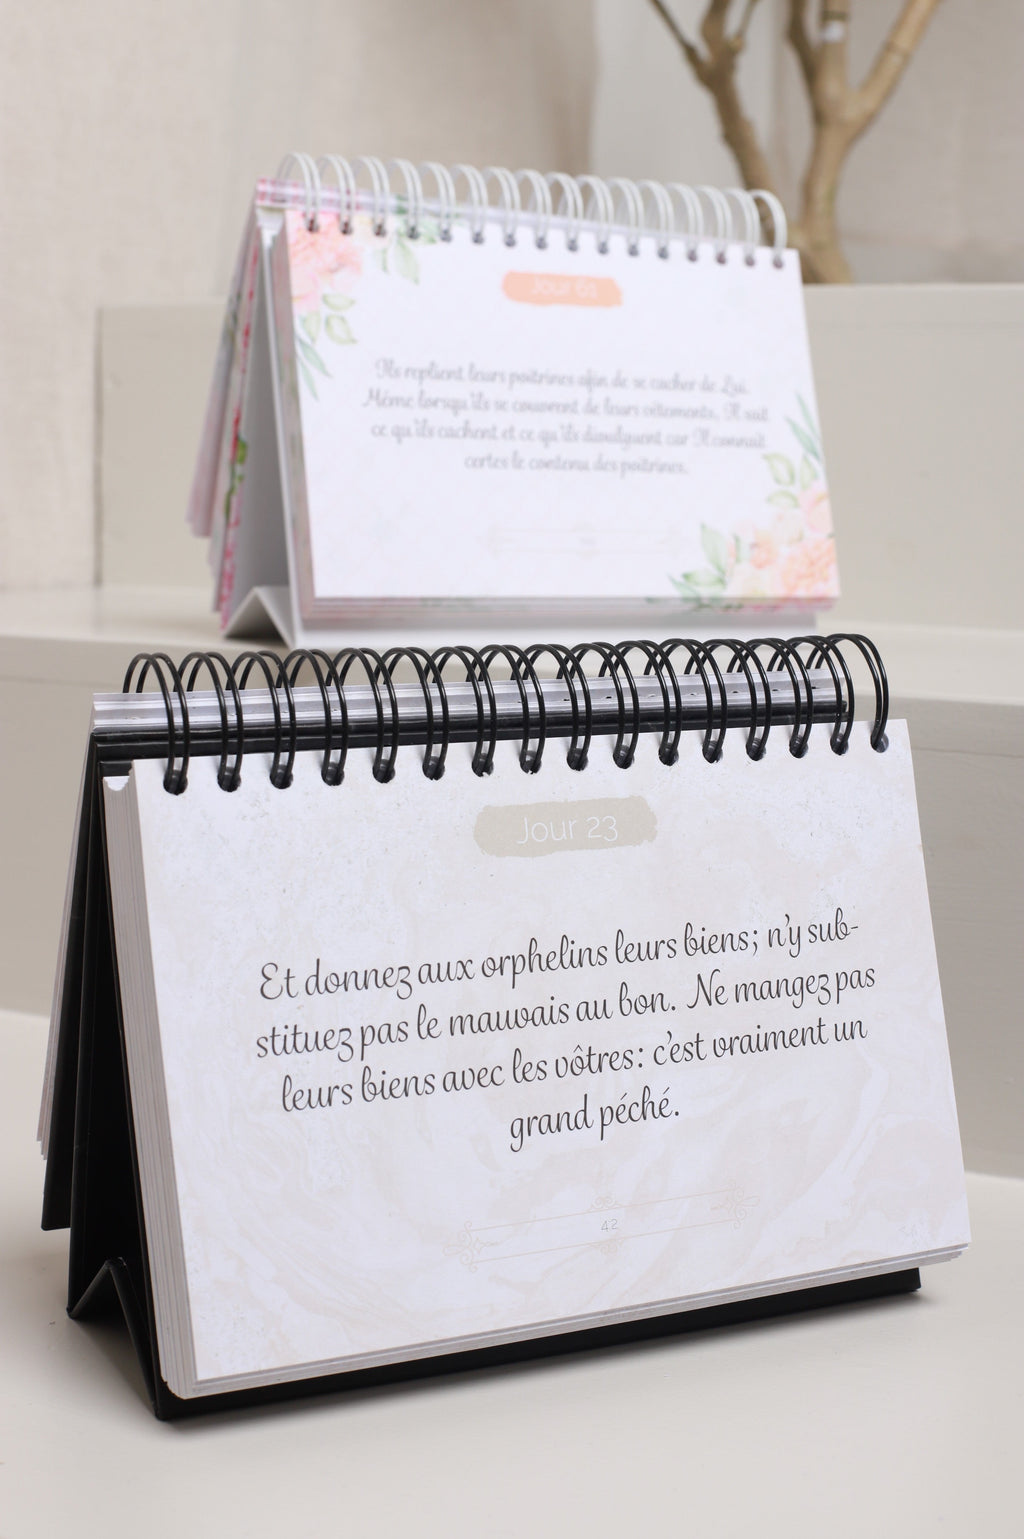 Jour 61
Ils replient leurs poitrines afin de se cacher de Lui.
Même lorsqu'ils se couvrent de leurs vêtements, Il sait
ce qu'ils cachent et ce qu'ils divulguent car Il connaît
certes le contenu des poitrines.
Jour 23
Et donnez aux orphelins leurs biens; n'y sub-
stituez pas le mauvais au bon. Ne mangez pas
leurs biens avec les vôtres: c'est vraiment un
grand péché.
42